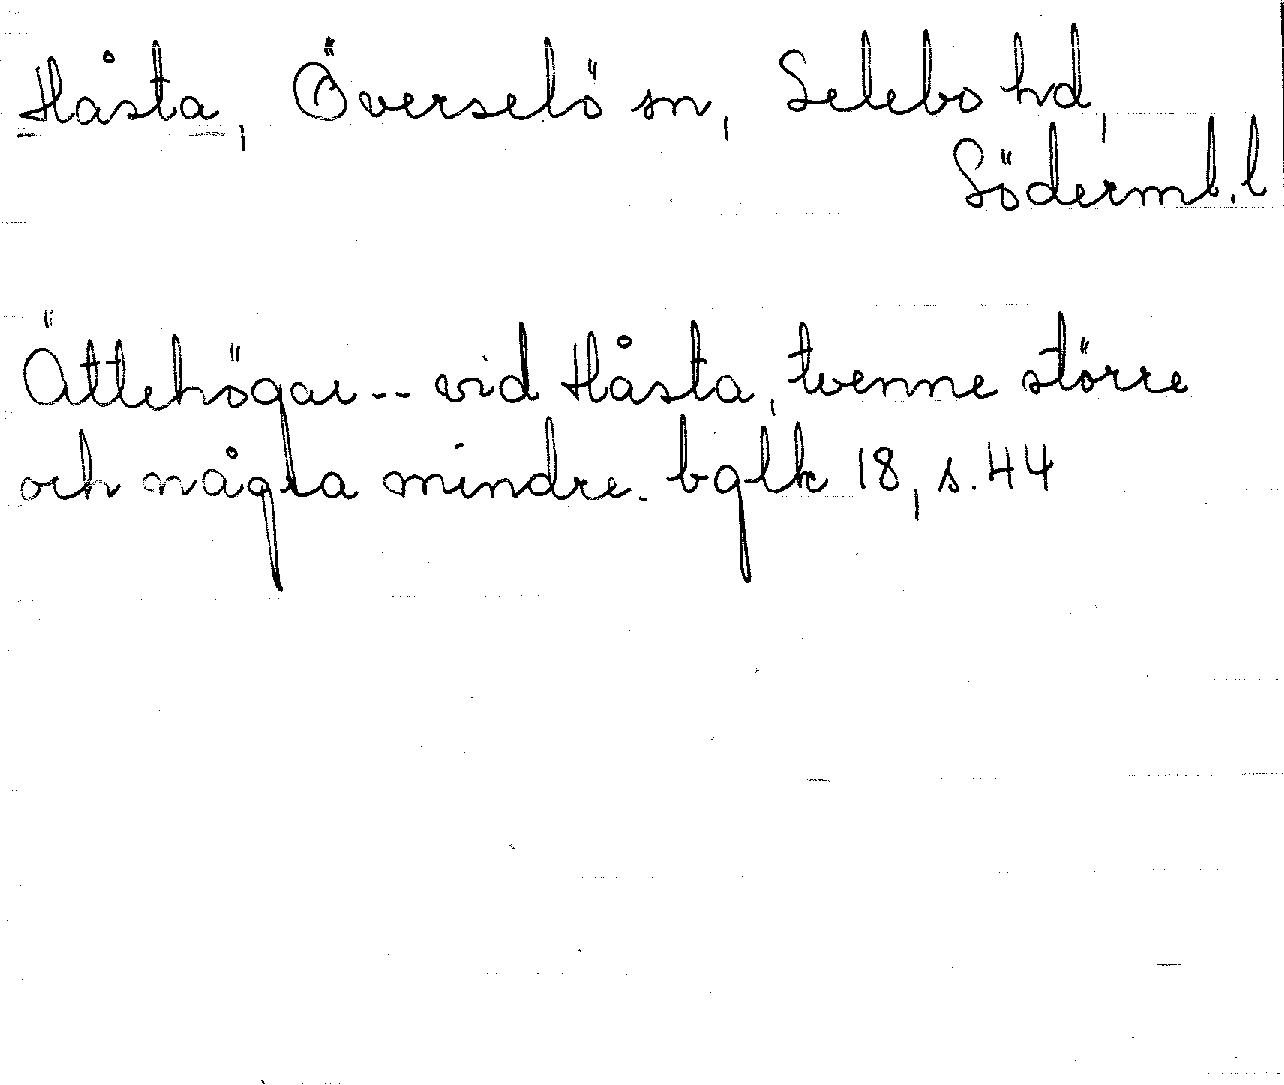 Håsta, Överselö sn, Selebo hd,
Söderml. l
Ättehögar -- vid Håsta, tvenne större
och några mindre. bglk 18, s. 44